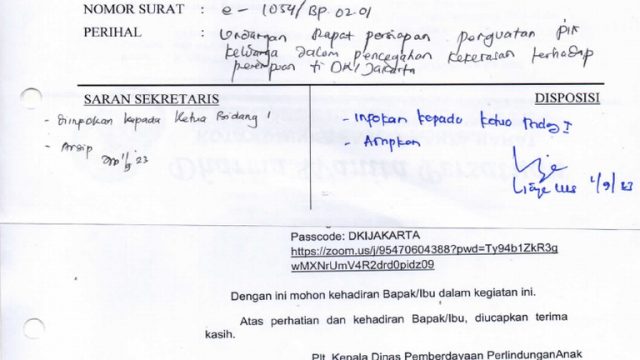 NOMOR SURAT : e - 1054/BP.02.01
PERIHAL : Undangan Rapat persiapan penguatan pik
keluarga dalam pencegahan kekerasan terhadap
perempuan di DKI Jakarta
SARAN SEKRETARIS
DISPOSISI
- Diinfokan kepada Ketua Bidang I
- Arsip
- Infokan kepada Ketua
- Arsipkan
1/9/23
Passcode: DKIJAKARTA
https://zoom.us/j/95470604388?pwd=Ty94b1ZkR3g
wMXNrUmV4R2drd0pidz09
Dengan ini mohon kehadiran Bapak/Ibu dalam kegiatan ini.
Atas perhatian dan kehadiran Bapak/Ibu, diucapkan terima
kasih.
Plt. Kepala Dinas Pemberdayaan PerlindunganAnak